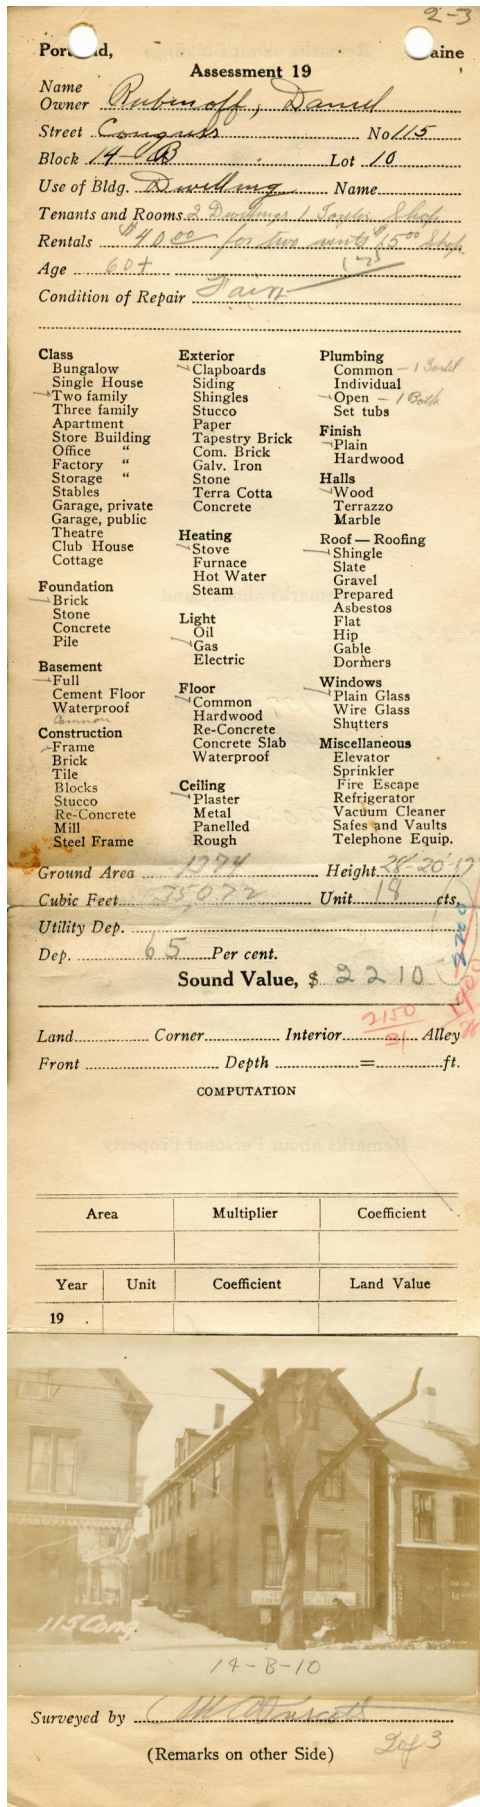 2-3
Portland, Maine
Assessment 19
Name
Owner Rubinoff, Daniel
Street Congress No 115
Block 14-B Lot 10
Use of Bldg. Dwelling Name
Tenants and Rooms 2 Dwellings 1 Tayler Shop
Rentals $40.00 for two rents $15.00 Shop
Age 60+
Condition of Repair Fair
Class
Bungalow
Single House
Two family
Three family
Apartment
Store Building
Office "
Factory "
Storage "
Stables
Garage, private
Garage, public
Theatre
Club House
Cottage
Foundation
Brick
Stone
Concrete
Pile
Basement
Full
Cement Floor
Waterproof
Common
Construction
Frame
Brick
Tile
Blocks
Stucco
Re-Concrete
Mill
Steel Frame
Exterior
Clapboards
Siding
Shingles
Stucco
Paper
Tapestry Brick
Com. Brick
Galv. Iron
Stone
Terra Cotta
Concrete
Heating
Stove
Furnace
Hot Water
Steam
Light
Oil
Gas
Electric
Floor
Common
Hardwood
Re-Concrete
Concrete Slab
Waterproof
Ceiling
Plaster
Metal
Panelled
Rough
Plumbing
Common - 1 Toilet
Individual
Open - 1 Bath
Set tubs
Finish
Plain
Hardwood
Halls
Wood
Terrazzo
Marble
Roof — Roofing
Shingle
Slate
Gravel
Prepared
Asbestos
Flat
Hip
Gable
Dormers
Windows
Plain Glass
Wire Glass
Shutters
Miscellaneous
Elevator
Sprinkler
Fire Escape
Refrigerator
Vacuum Cleaner
Safes and Vaults
Telephone Equip.
Ground Area 1774 Height 28-20-17
Cubic Feet 35072 Unit 18 cts.
Utility Dep.
Dep. 65 Per cent.
2200
Sound Value, $ 2210
1900
2150
31
Land Corner Interior Alley
Front Depth = ft.
COMPUTATION
Area Multiplier Coefficient
Year Unit Coefficient Land Value
19 .
115 Cong
14-B-10
Surveyed by
(Remarks on other Side)
2 of 3